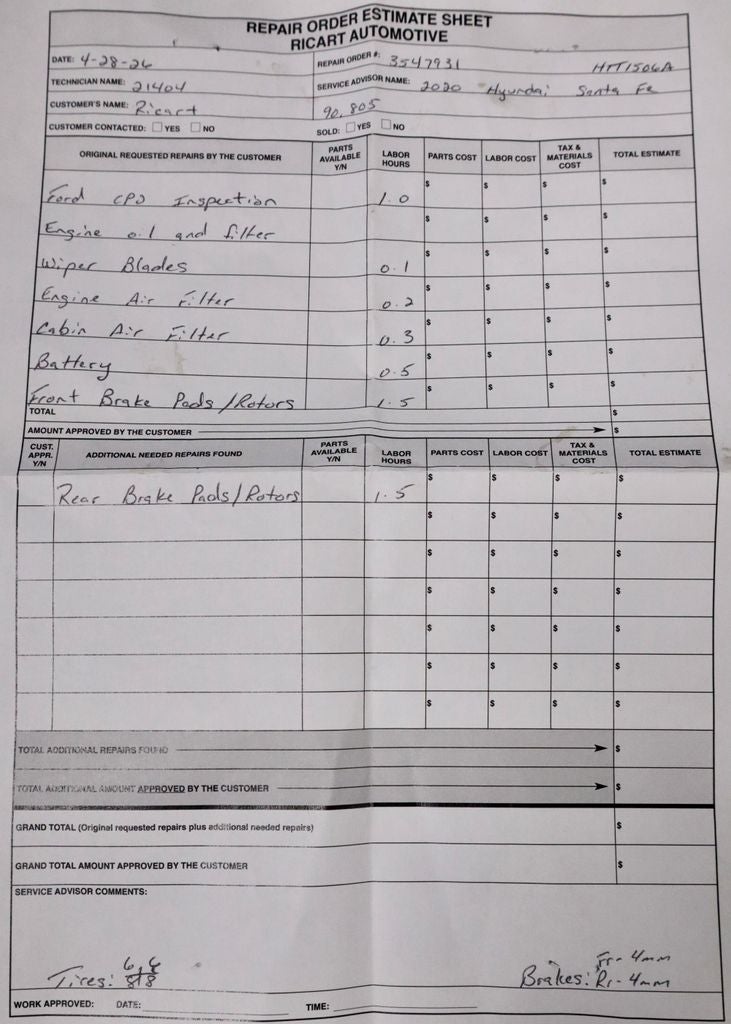 REPAIR ORDER ESTIMATE SHEET
RICART AUTOMOTIVE
DATE: 4-28-26 REPAIR ORDER #: 3547931 HTT1506A
TECHNICIAN NAME: 21404 SERVICE ADVISOR NAME: 2020 Hyundai Santa Fe
CUSTOMER'S NAME: Ricart 90,805
CUSTOMER CONTACTED: ☐ YES ☐ NO SOLD: ☐ YES ☐ NO
ORIGINAL REQUESTED REPAIRS BY THE CUSTOMER PARTS AVAILABLE Y/N LABOR HOURS PARTS COST LABOR COST TAX & MATERIALS COST TOTAL ESTIMATE
Ford CPO Inspection 1.0 $ $ $ $
Engine oil and filter $ $ $ $
Wiper Blades 0.1 $ $ $ $
Engine Air Filter 0.2 $ $ $ $
Cabin Air Filter 0.3 $ $ $ $
Battery 0.5 $ $ $ $
Front Brake Pads/Rotors 1.5 $ $ $ $
TOTAL $
AMOUNT APPROVED BY THE CUSTOMER $
CUST. APPR. Y/N ADDITIONAL NEEDED REPAIRS FOUND PARTS AVAILABLE Y/N LABOR HOURS PARTS COST LABOR COST TAX & MATERIALS COST TOTAL ESTIMATE
Rear Brake Pads/Rotors 1.5 $ $ $ $
$ $ $ $
$ $ $ $
$ $ $ $
$ $ $ $
$ $ $ $
$ $ $ $
TOTAL ADDITIONAL REPAIRS FOUND $
TOTAL ADDITIONAL AMOUNT APPROVED BY THE CUSTOMER $
GRAND TOTAL (Original requested repairs plus additional needed repairs) $
GRAND TOTAL AMOUNT APPROVED BY THE CUSTOMER $
SERVICE ADVISOR COMMENTS:
6 6 Fr- 4mm
Tires: 8 8 Brakes: Rr- 4mm
WORK APPROVED: DATE: TIME: